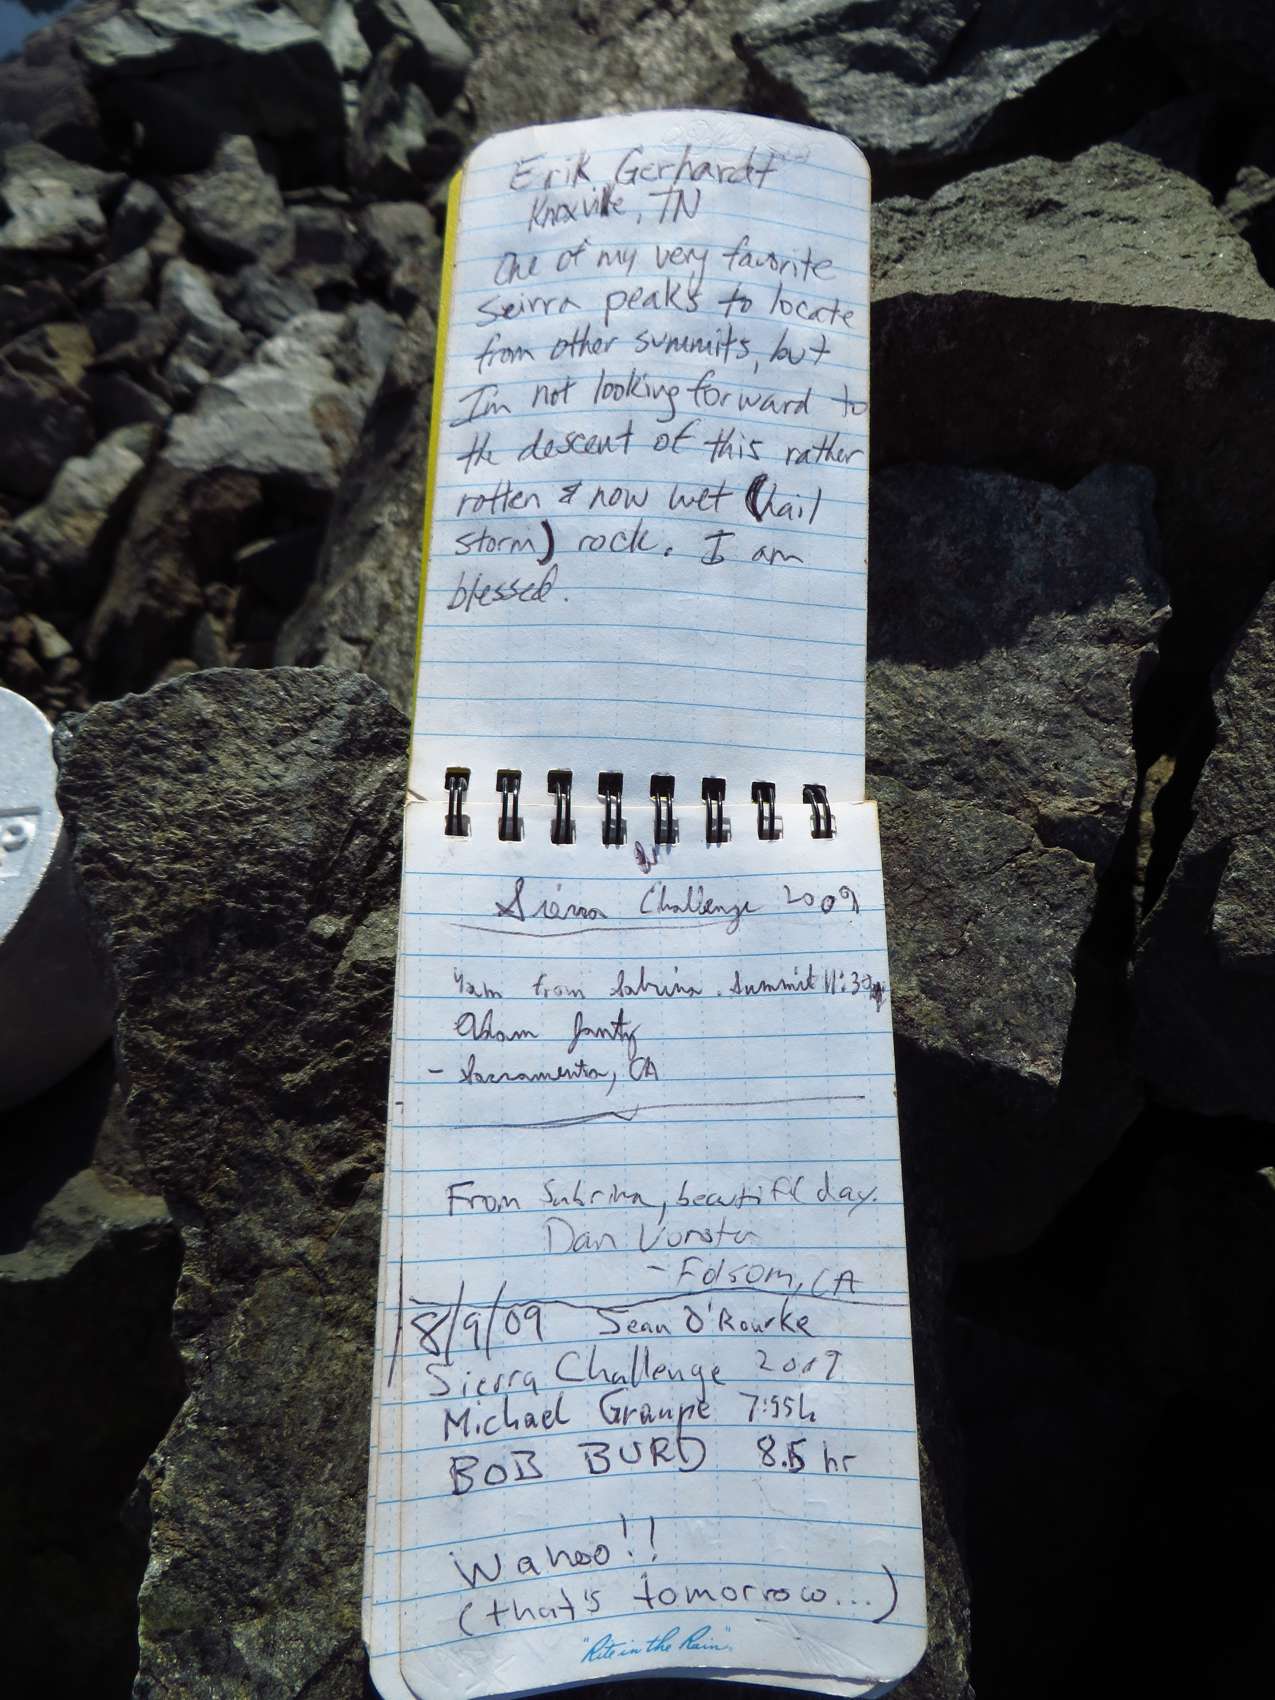 Erik Gerhardt
Knoxville, TN
One of my very favorite
Seirra peaks to locate
from other summits, but
I'm not looking forward to
the descent of this rather
rotten & now wet (hail
storm) rock. I am
blessed.
Sierra Challenge 2009
4am from Sabrina. Summit 11:30
Adam Jantz
- Sacramento, CA
From Sabrina, beautiful day.
Dan
- Folsom, CA
8/9/09 Sean O'Rourke
Sierra Challenge 2009
Michael Graupe 7:55h
BOB BURD 8.5 hr
Wahoo!!
(that's tomorrow...)
"Rite in the Rain"